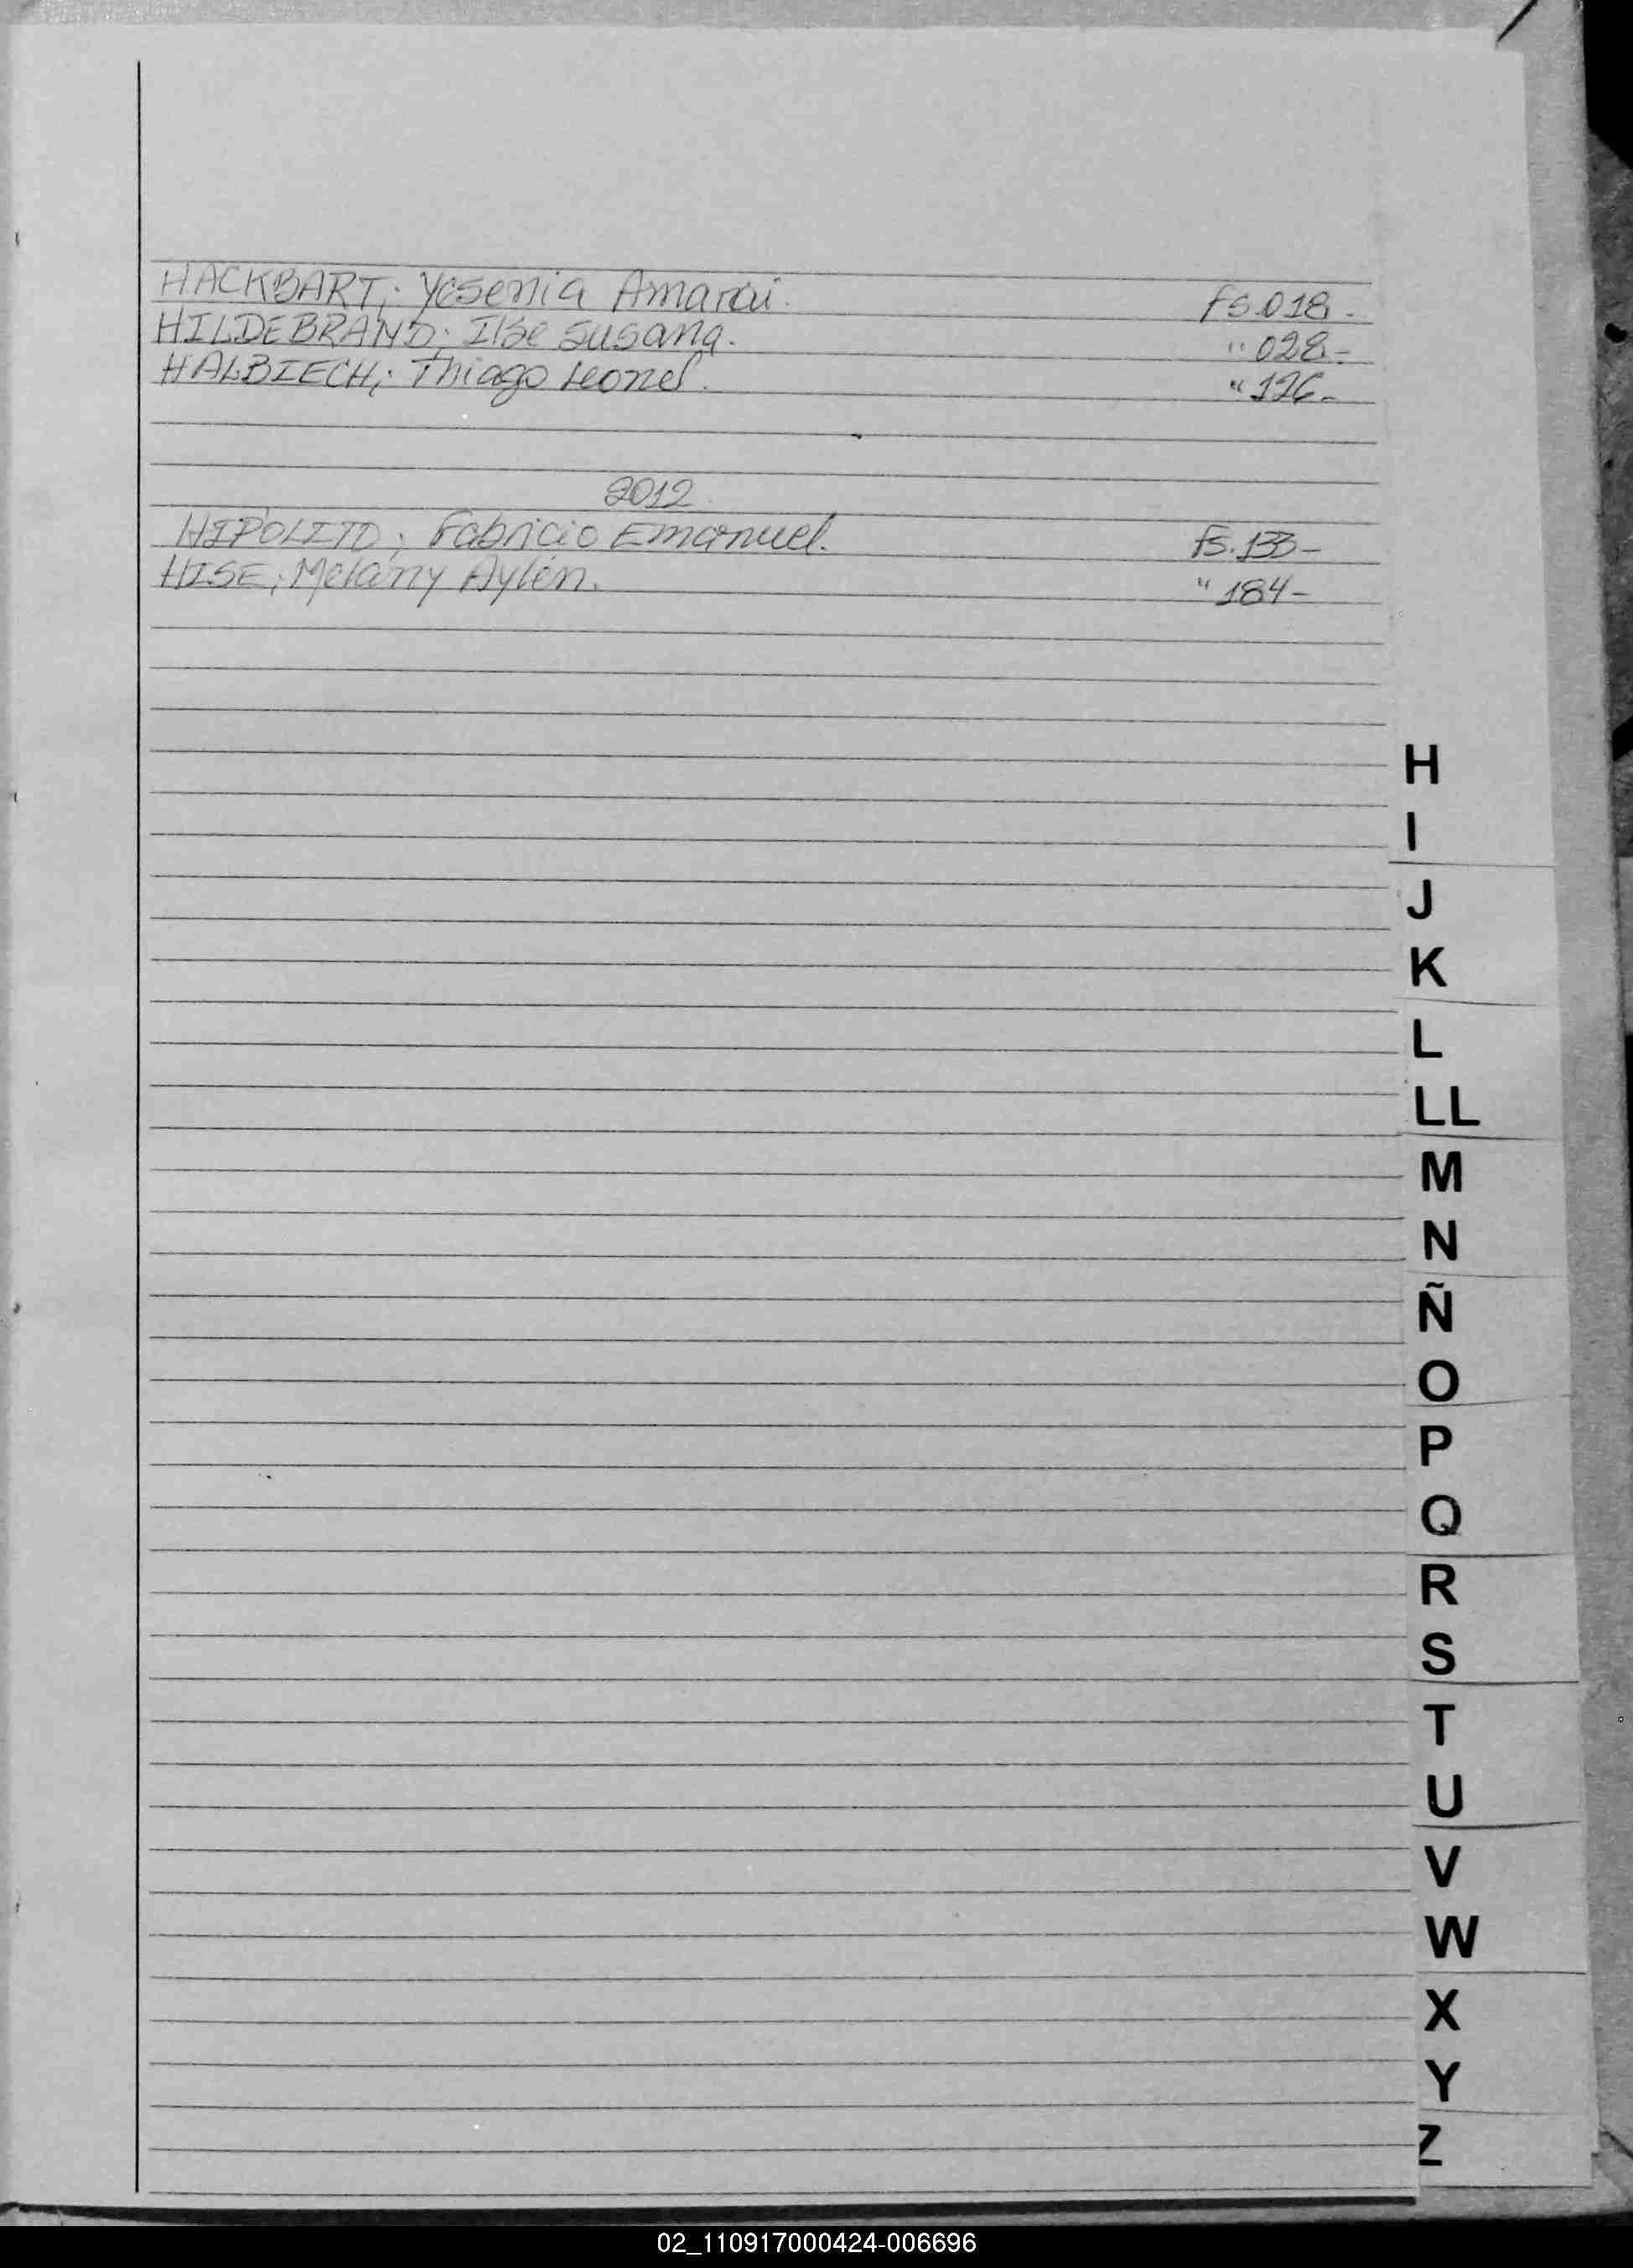 HACKBART; Yesenia Amarai. Fs.018.-
HILDEBRAND; Ilse Susana. " 028.-
HALBIECH; Thiago Leonel. " 126.-
2012
HIPOLITO; Fabricio Emanuel. Fs.133-
HISE; Melany Aylén. " 184-
H
I
J
K
L
LL
M
N
Ñ
O
P
Q
R
S
T
U
V
W
X
Y
Z
02_110917000424-006696